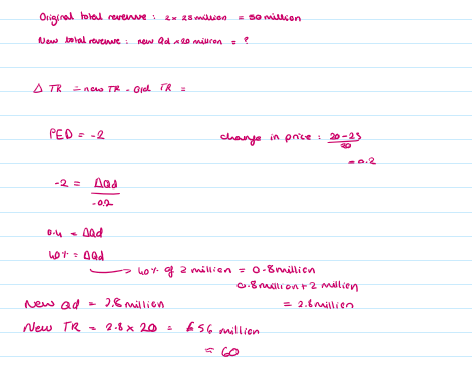 Original total revenue : 2 x 25 million = 50 million
New total revenue : new Qd x 20 million = ?
Δ TR = new TR - Old TR =
PED = -2
change in price : 20-25
20
= 0.2
-2 = ΔQd
-0.2
0.4 = ΔQd
40% = ΔQd
40% of 2 million = 0.8 million
0.8 million + 2 million
New Qd = 2.8 million
= 2.8 million
New TR = 2.8 x 20 = £56 million
= 60